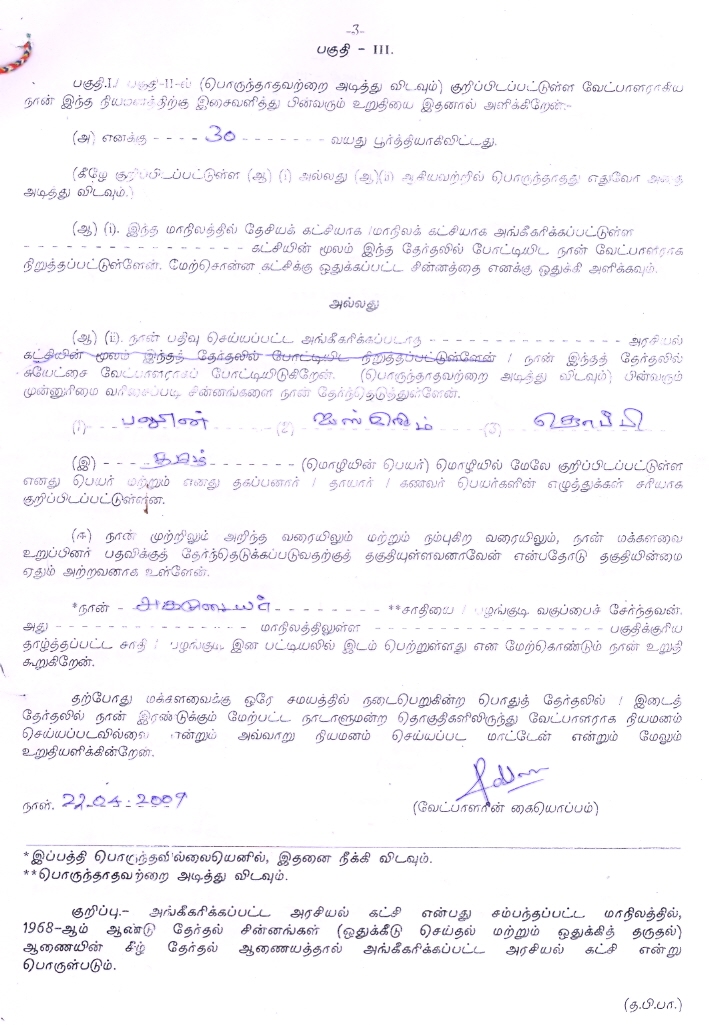 -3-
பகுதி - III.
பகுதி.I./ பகுதி-II-ல் (பொருந்தாதவற்றை அடித்து விடவும்) குறிப்பிடப்பட்டுள்ள வேட்பாளராகிய
நான் இந்த நியமனத்திற்கு இசைவளித்து பின்வரும் உறுதியை இதனால் அளிக்கிறேன்:-
(அ) எனக்கு - - - - 30 - - - - - - - - வயது பூர்த்தியாகிவிட்டது.
(கீழே குறிப்பிடப்பட்டுள்ள (ஆ) (i) அல்லது (ஆ)(ii) ஆகியவற்றில் பொருந்தாதது எதுவோ அதை
அடித்து விடவும்.)
(ஆ) (i). இந்த மாநிலத்தில் தேசியக் கட்சியாக /மாநிலக் கட்சியாக அங்கீகரிக்கப்பட்டுள்ள
- - - - - - - - - - - - - - - - - - கட்சியின் மூலம் இந்த தேர்தலில் போட்டியிட நான் வேட்பாளராக
நிறுத்தப்பட்டுள்ளேன். மேற்சொன்ன கட்சிக்கு ஒதுக்கப்பட்ட சின்னத்தை எனக்கு ஒதுக்கி அளிக்கவும்.
அல்லது
(ஆ) (ii). நான் பதிவு செய்யப்பட்ட அங்கீகரிக்கப்படாத - - - - - - - - - - - - - - - - அரசியல்
கட்சியின் மூலம் இந்தத் தேர்தலில் போட்டியிட நிறுத்தப்பட்டுள்ளேன் / நான் இந்தத் தேர்தலில்
சுயேட்சை வேட்பாளராகப் போட்டியிடுகிறேன். (பொருந்தாதவற்றை அடித்து விடவும்) பின்வரும்
முன்னுரிமை வரிசைப்படி சின்னங்களை நான் தேர்ந்தெடுத்துள்ளேன்.
(1) பலூன் (2) ஐஸ்கிரீம் (3) தொப்பி
(இ) - - - தமிழ் - - - - - - - (மொழியின் பெயர்) மொழியில் மேலே குறிப்பிடப்பட்டுள்ள
எனது பெயர் மற்றும் எனது தகப்பனார் / தாயார் / கணவர் பெயர்களின் எழுத்துக்கள் சரியாக
குறிப்பிடப்பட்டுள்ளன.
(ஈ) நான் முற்றிலும் அறிந்த வரையிலும் மற்றும் நம்புகிற வரையிலும், நான் மக்களவை
உறுப்பினர் பதவிக்குத் தேர்ந்தெடுக்கப்படுவதற்குத் தகுதியுள்ளவனாவேன் என்பதோடு தகுதியின்மை
ஏதும் அற்றவனாக உள்ளேன்.
*நான் - அகமுடையர் - - - - - - - - **சாதியை / பழங்குடி வகுப்பைச் சேர்ந்தவன்.
அது - - - - - - - - - - - - - மாநிலத்திலுள்ள - - - - - - - - - - - - - - - - பகுதிக்குரிய
தாழ்த்தப்பட்ட சாதி / பழங்குடி இன பட்டியலில் இடம் பெற்றுள்ளது என மேற்கொண்டும் நான் உறுதி
கூறுகிறேன்.
தற்போது மக்களவைக்கு ஒரே சமயத்தில் நடைபெறுகின்ற பொதுத் தேர்தலில் / இடைத்
தேர்தலில் நான் இரண்டுக்கும் மேற்பட்ட நாடாளுமன்ற தொகுதிகளிலிருந்து வேட்பாளராக நியமனம்
செய்யப்படவில்லை என்றும் அவ்வாறு நியமனம் செய்யப்பட மாட்டேன் என்றும் மேலும்
உறுதியளிக்கின்றேன்.
நாள். 22-04-2009
(வேட்பாளரின் கையொப்பம்)
*இப்பத்தி பொருந்தவில்லையெனில், இதனை நீக்கி விடவும்.
**பொருந்தாதவற்றை அடித்து விடவும்.
குறிப்பு.- அங்கீகரிக்கப்பட்ட அரசியல் கட்சி என்பது சம்பந்தப்பட்ட மாநிலத்தில்,
1968-ஆம் ஆண்டு தேர்தல் சின்னங்கள் (ஒதுக்கீடு செய்தல் மற்றும் ஒதுக்கித் தருதல்)
ஆணையின் கீழ் தேர்தல் ஆணையத்தால் அங்கீகரிக்கப்பட்ட அரசியல் கட்சி என்று
பொருள்படும்.
(த.பி.பா.)